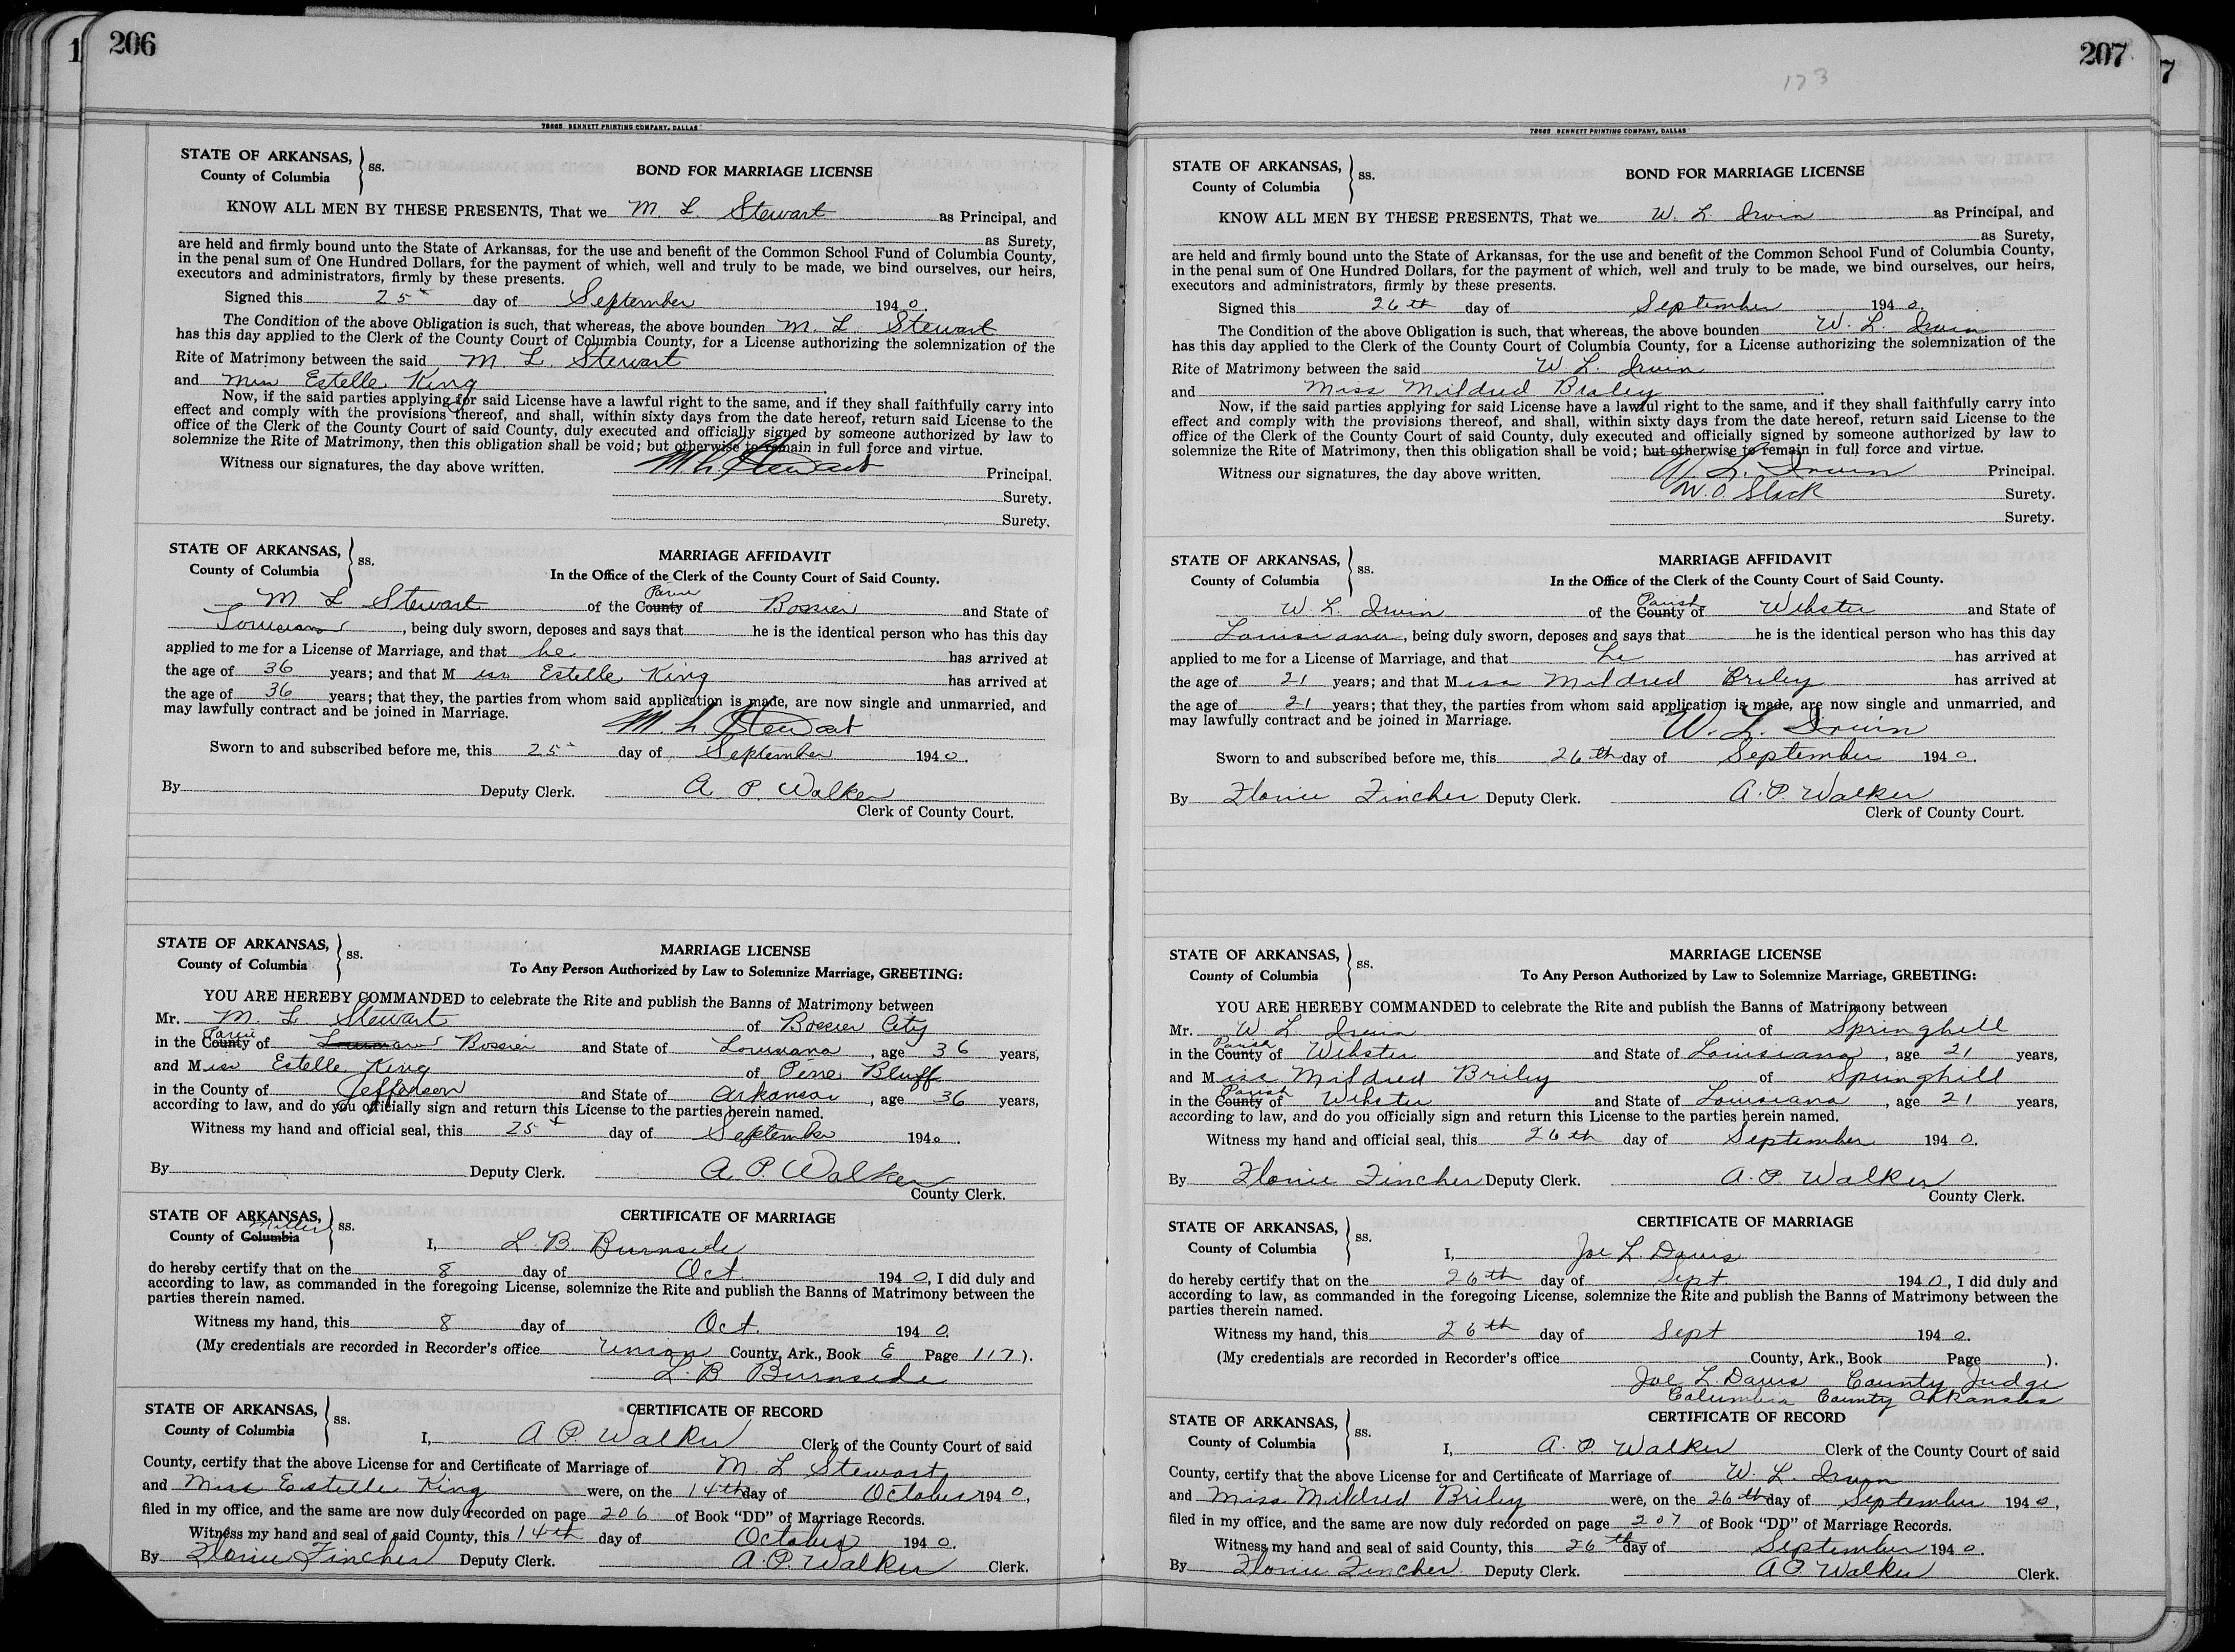 1
206
78665 BENNETT PRINTING COMPANY, DALLAS
STATE OF ARKANSAS,
County of Columbia
ss.
BOND FOR MARRIAGE LICENSE
KNOW ALL MEN BY THESE PRESENTS, That we M. L. Stewart as Principal, and
as Surety,
are held and firmly bound unto the State of Arkansas, for the use and benefit of the Common School Fund of Columbia County,
in the penal sum of One Hundred Dollars, for the payment of which, well and truly to be made, we bind ourselves, our heirs,
executors and administrators, firmly by these presents.
Signed this 25 day of September 1940.
The Condition of the above Obligation is such, that whereas, the above bounden M. L. Stewart
has this day applied to the Clerk of the County Court of Columbia County, for a License authorizing the solemnization of the
Rite of Matrimony between the said M. L. Stewart
and Miss Estelle King
Now, if the said parties applying for said License have a lawful right to the same, and if they shall faithfully carry into
effect and comply with the provisions thereof, and shall, within sixty days from the date hereof, return said License to the
office of the Clerk of the County Court of said County, duly executed and officially signed by someone authorized by law to
solemnize the Rite of Matrimony, then this obligation shall be void; but otherwise to remain in full force and virtue.
Witness our signatures, the day above written. M. L. Stewart Principal.
Surety.
Surety.
STATE OF ARKANSAS,
County of Columbia
ss.
MARRIAGE AFFIDAVIT
In the Office of the Clerk of the County Court of Said County.
M L Stewart of the County Parish of Bossier and State of
Louisiana, being duly sworn, deposes and says that he is the identical person who has this day
applied to me for a License of Marriage, and that he has arrived at
the age of 36 years; and that Miss Estelle King has arrived at
the age of 36 years; that they, the parties from whom said application is made, are now single and unmarried, and
may lawfully contract and be joined in Marriage.
M. L. Stewart
Sworn to and subscribed before me, this 25 day of September 1940.
By Deputy Clerk. A. P. Walker
Clerk of County Court.
STATE OF ARKANSAS,
County of Columbia
ss.
MARRIAGE LICENSE
To Any Person Authorized by Law to Solemnize Marriage, GREETING:
YOU ARE HEREBY COMMANDED to celebrate the Rite and publish the Banns of Matrimony between
Mr. M. L Stewart of Bossier City
in the County Parish of Louisiana Bossier and State of Louisiana, age 36 years,
and Miss Estelle King of Pine Bluff
in the County of Jefferson and State of Arkansas, age 36 years,
according to law, and do you officially sign and return this License to the parties herein named.
Witness my hand and official seal, this 25 day of September 1940.
By Deputy Clerk. A. P. Walker
County Clerk.
STATE OF ARKANSAS,
County of Columbia Miller
ss.
CERTIFICATE OF MARRIAGE
I, L. B. Burnside
do hereby certify that on the 8 day of Oct. 1940, I did duly and
according to law, as commanded in the foregoing License, solemnize the Rite and publish the Banns of Matrimony between the
parties therein named.
Witness my hand, this 8 day of Oct. 1940.
(My credentials are recorded in Recorder's office Union County, Ark., Book E Page 117).
L. B Burnside
STATE OF ARKANSAS,
County of Columbia
ss.
CERTIFICATE OF RECORD
I, A. P. Walker Clerk of the County Court of said
County, certify that the above License for and Certificate of Marriage of M. L Stewart
and Miss Estelle King were, on the 14th day of October 1940,
filed in my office, and the same are now duly recorded on page 206 of Book "DD" of Marriage Records.
Witness my hand and seal of said County, this 14th day of October 1940.
By Florine Fincher Deputy Clerk. A. P. Walker Clerk.
207
7
173
78665 BENNETT PRINTING COMPANY, DALLAS
STATE OF ARKANSAS,
County of Columbia
ss.
BOND FOR MARRIAGE LICENSE
KNOW ALL MEN BY THESE PRESENTS, That we W. L. Irvin as Principal, and
as Surety,
are held and firmly bound unto the State of Arkansas, for the use and benefit of the Common School Fund of Columbia County,
in the penal sum of One Hundred Dollars, for the payment of which, well and truly to be made, we bind ourselves, our heirs,
executors and administrators, firmly by these presents.
Signed this 26th day of September 1940.
The Condition of the above Obligation is such, that whereas, the above bounden W. L. Irvin
has this day applied to the Clerk of the County Court of Columbia County, for a License authorizing the solemnization of the
Rite of Matrimony between the said W. L. Irvin
and Miss Mildred Braley.
Now, if the said parties applying for said License have a lawful right to the same, and if they shall faithfully carry into
effect and comply with the provisions thereof, and shall, within sixty days from the date hereof, return said License to the
office of the Clerk of the County Court of said County, duly executed and officially signed by someone authorized by law to
solemnize the Rite of Matrimony, then this obligation shall be void; but otherwise to remain in full force and virtue.
Witness our signatures, the day above written. W. L. Irvin Principal.
W. O. Slack Surety.
Surety.
STATE OF ARKANSAS,
County of Columbia
ss.
MARRIAGE AFFIDAVIT
In the Office of the Clerk of the County Court of Said County.
W. L. Irvin of the County Parish of Webster and State of
Louisiana, being duly sworn, deposes and says that he is the identical person who has this day
applied to me for a License of Marriage, and that he has arrived at
the age of 21 years; and that Miss Mildred Briley has arrived at
the age of 21 years; that they, the parties from whom said application is made, are now single and unmarried, and
may lawfully contract and be joined in Marriage.
W. L. Irvin
Sworn to and subscribed before me, this 26th day of September 1940.
By Florine Fincher Deputy Clerk. A. P. Walker
Clerk of County Court.
STATE OF ARKANSAS,
County of Columbia
ss.
MARRIAGE LICENSE
To Any Person Authorized by Law to Solemnize Marriage, GREETING:
YOU ARE HEREBY COMMANDED to celebrate the Rite and publish the Banns of Matrimony between
Mr. W. L Irvin of Springhill
in the County Parish of Webster and State of Louisiana, age 21 years,
and Miss Mildred Briley of Springhill
in the County Parish of Webster and State of Louisiana, age 21 years,
according to law, and do you officially sign and return this License to the parties herein named.
Witness my hand and official seal, this 26th day of September 1940.
By Florine Fincher Deputy Clerk. A. P. Walker
County Clerk.
STATE OF ARKANSAS,
County of Columbia
ss.
CERTIFICATE OF MARRIAGE
I, Joe L. Davis
do hereby certify that on the 26th day of Sept. 1940, I did duly and
according to law, as commanded in the foregoing License, solemnize the Rite and publish the Banns of Matrimony between the
parties therein named.
Witness my hand, this 26th day of Sept 1940.
(My credentials are recorded in Recorder's office County, Ark., Book Page ).
Joe L. Davis County Judge
Columbia County Arkansas
STATE OF ARKANSAS,
County of Columbia
ss.
CERTIFICATE OF RECORD
I, A. P. Walker Clerk of the County Court of said
County, certify that the above License for and Certificate of Marriage of W. L. Irvin
and Miss Mildred Briley were, on the 26th day of September 1940,
filed in my office, and the same are now duly recorded on page 207 of Book "DD" of Marriage Records.
Witness my hand and seal of said County, this 26th day of September 1940.
By Florine Fincher Deputy Clerk. A P. Walker Clerk.